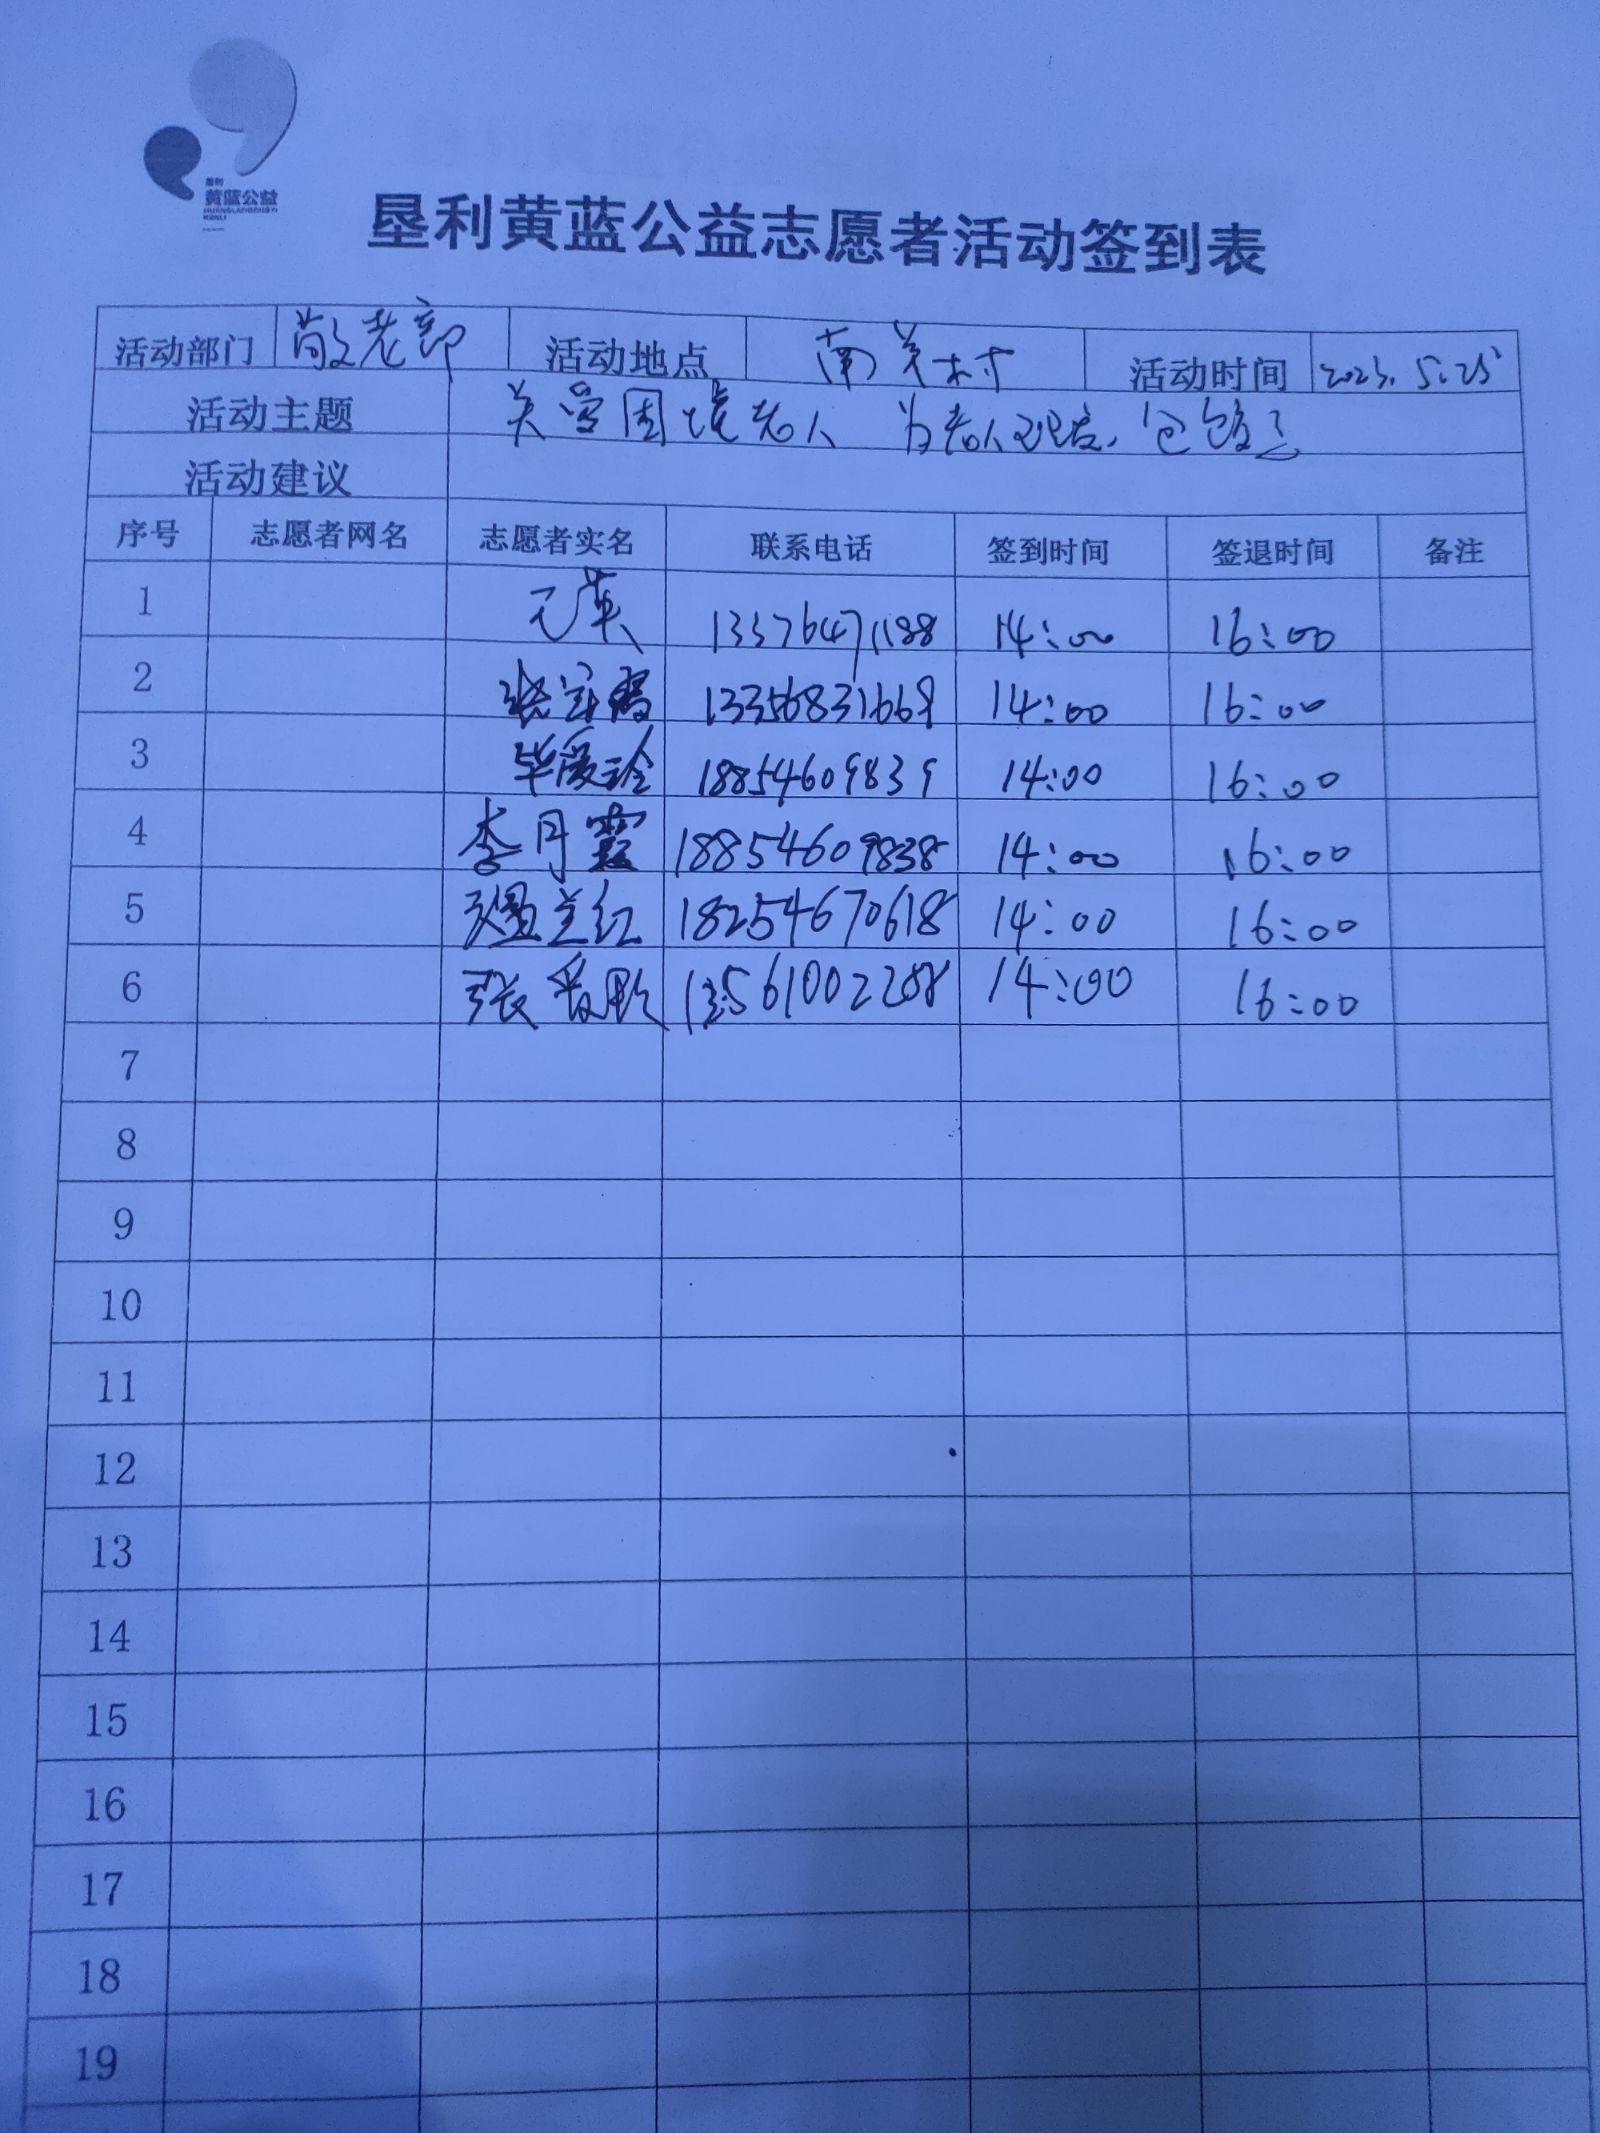 垦利
黄蓝公益
HUANGLANGONGYI
KENLI
垦利黄蓝公益志愿者活动签到表
活动部门 敬老部 活动地点 南羊村 活动时间 2023.5.25
活动主题 关爱困境老人 为老人理发、包饺子
活动建议
序号 志愿者网名 志愿者实名 联系电话 签到时间 签退时间 备注
1 13376471188 14:00 16:00
2 13356831669 14:00 16:00
3 毕爱玲 18854609839 14:00 16:00
4 李月霞 18854609838 14:00 16:00
5 兰红 18254670618 14:00 16:00
6 张爱 13561002288 14:00 16:00
7
8
9
10
11
12
13
14
15
16
17
18
19